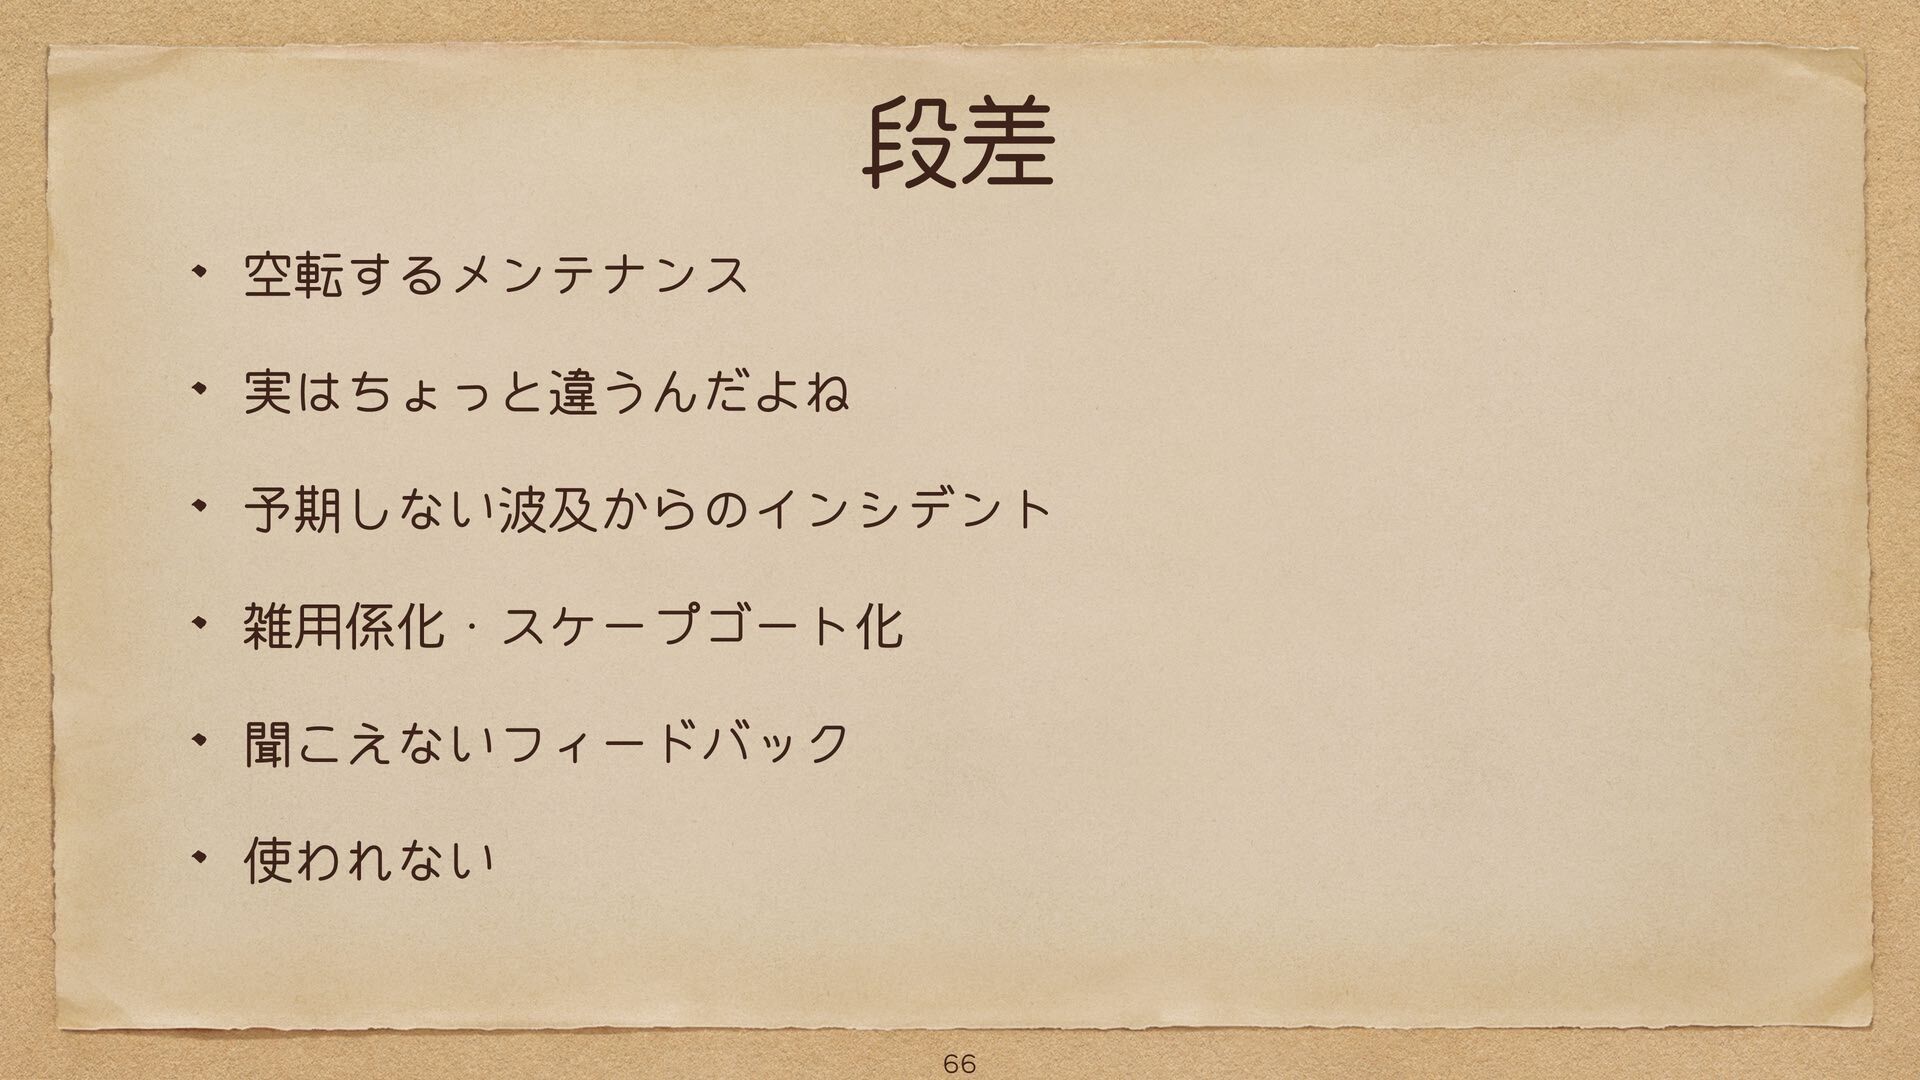 段差
• 空転するメンテナンス
• 実はちょっと違うんだよね
• 予期しない波及からのインシデント
• 雑用係化・スケープゴート化
• 聞こえないフィードバック
• 使われない
66